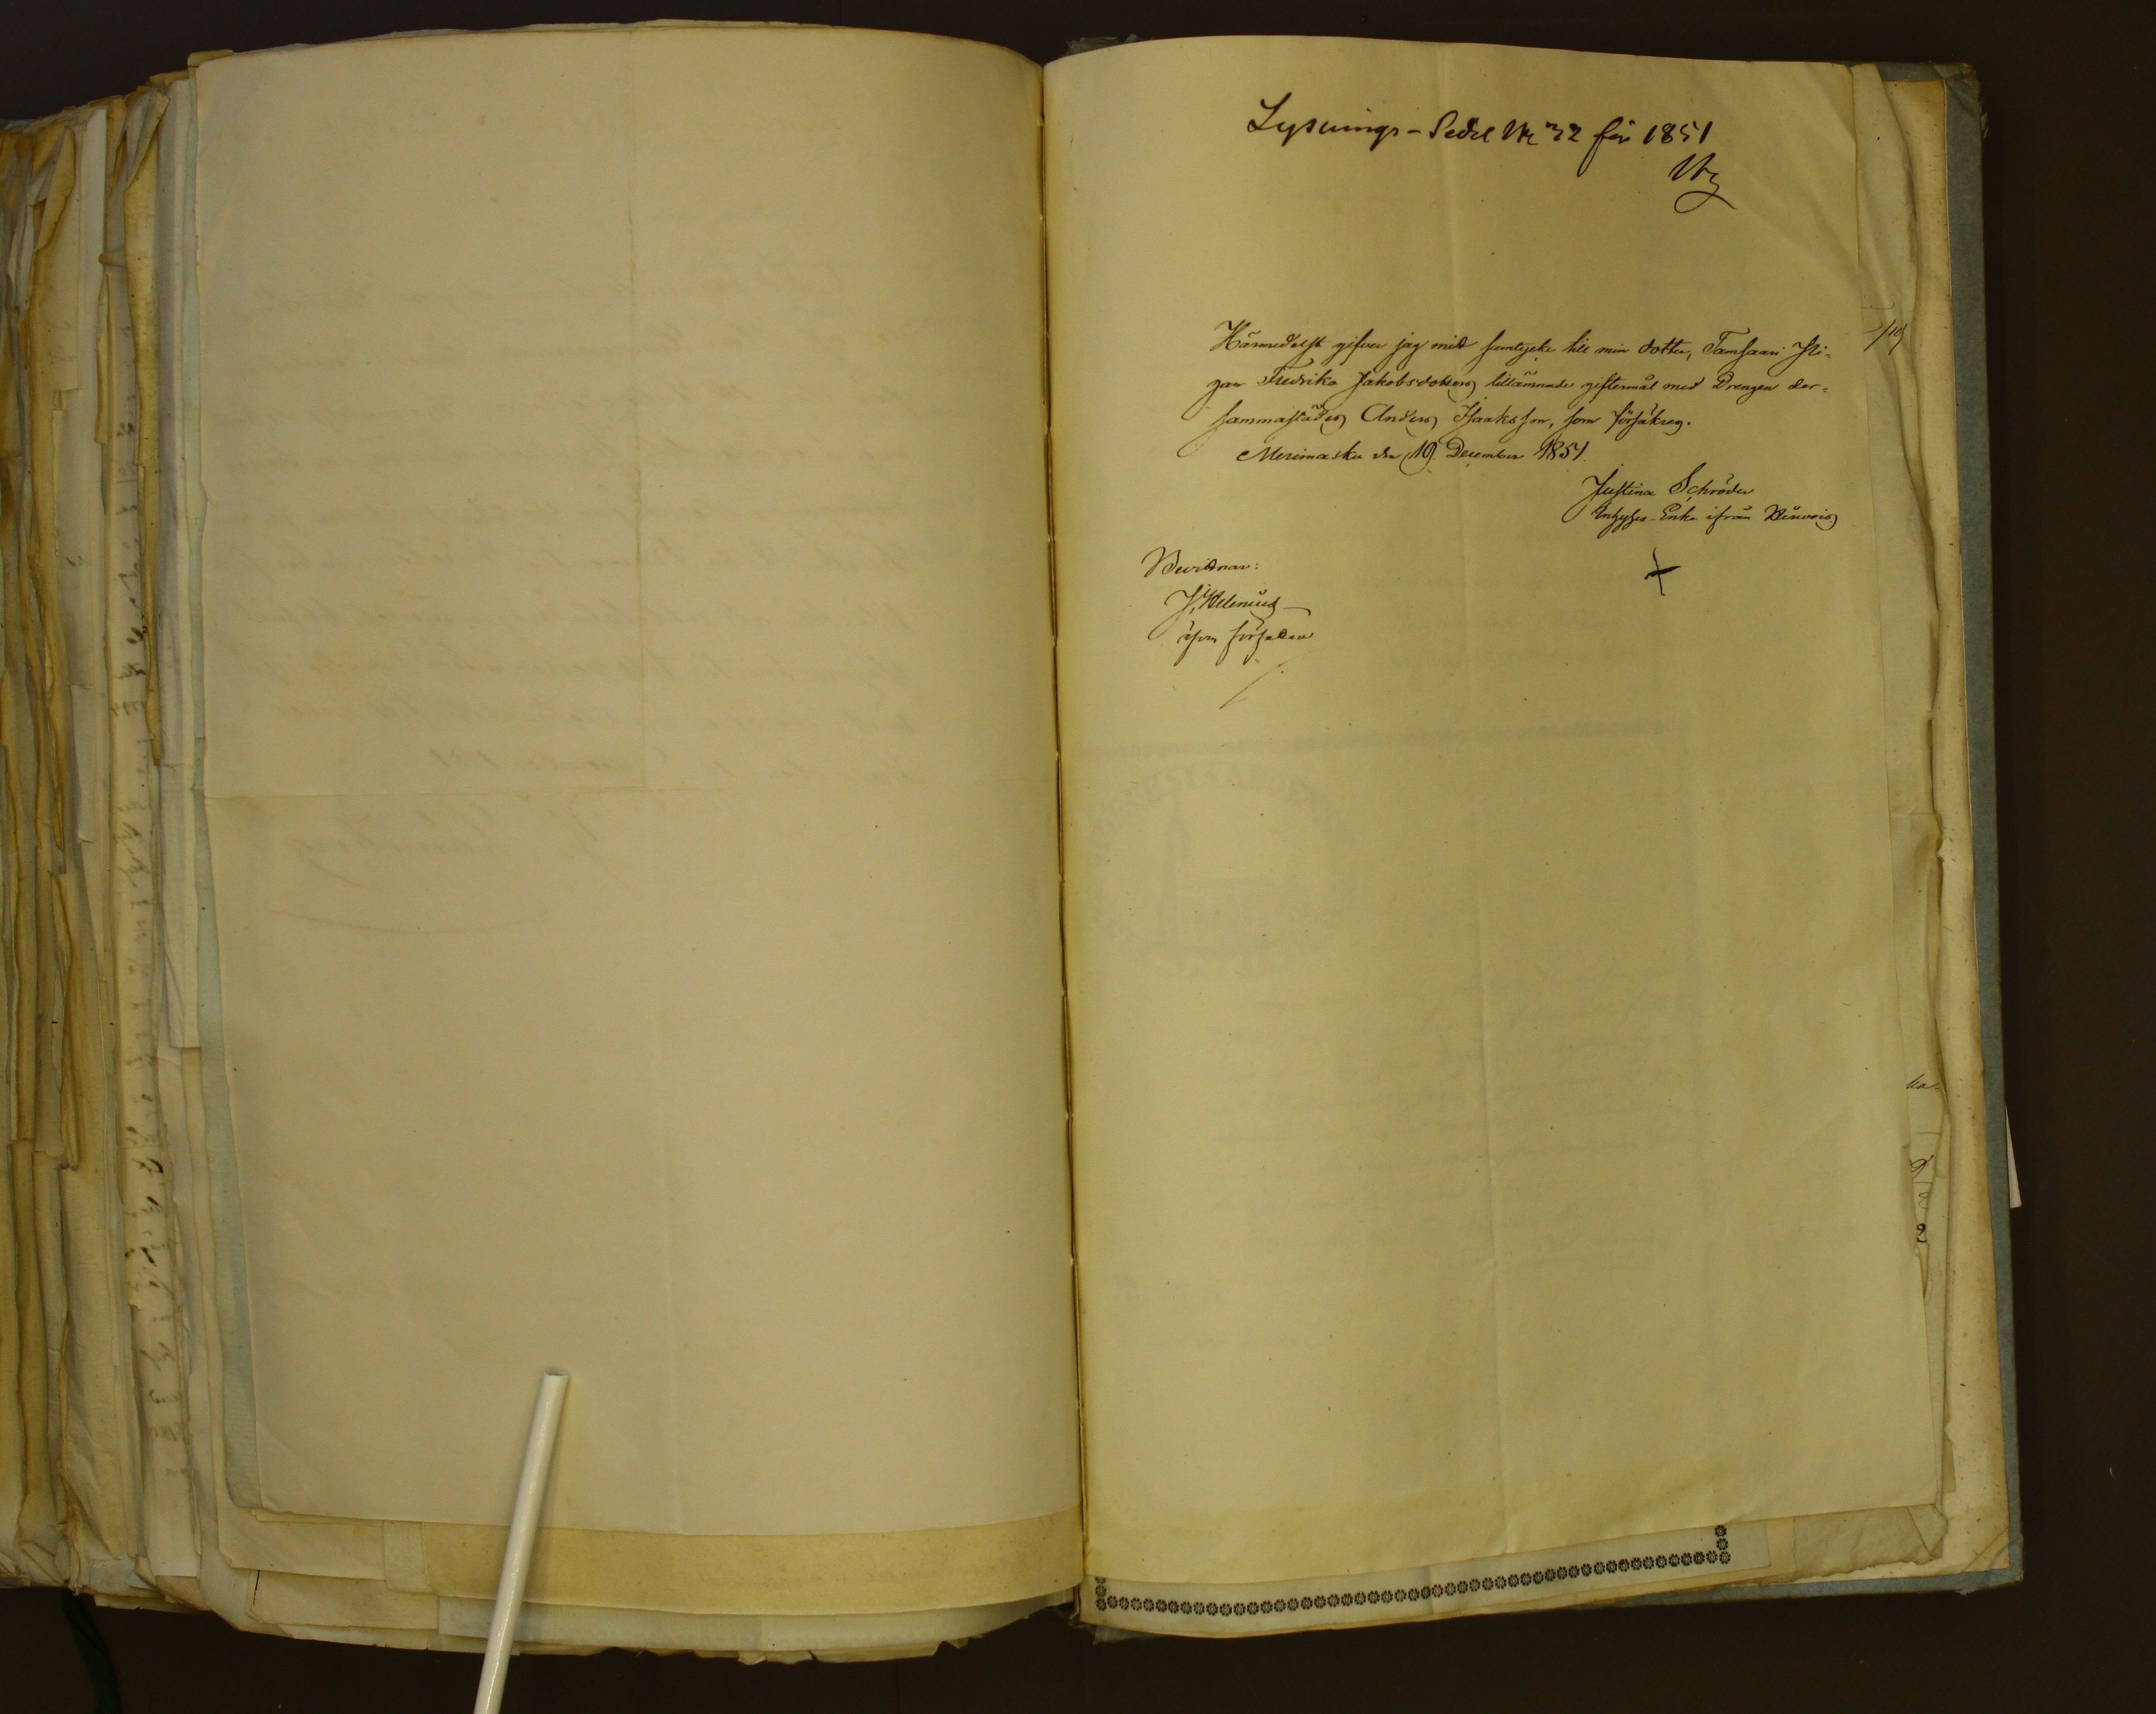 Lysnings-Sedel No 32 för 1851
Härmedelst gifver jag mitt samtycke till min dotter, Tamsaari Pi-
gan Fredrika Jakobsdotters tillämnade giftermål med Drengen der-
sammastädes Anders Isaaksson, som försäkras.
Merimasku den 19 December 1851.
Justina Schröder
Inhyses-Enka ifrån
Bevittnar:
J. Helenius